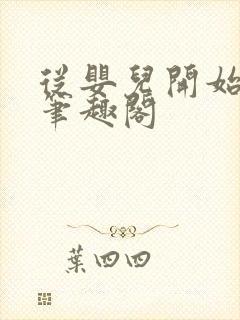 從嬰兒開始
筆趣閣
葉四四